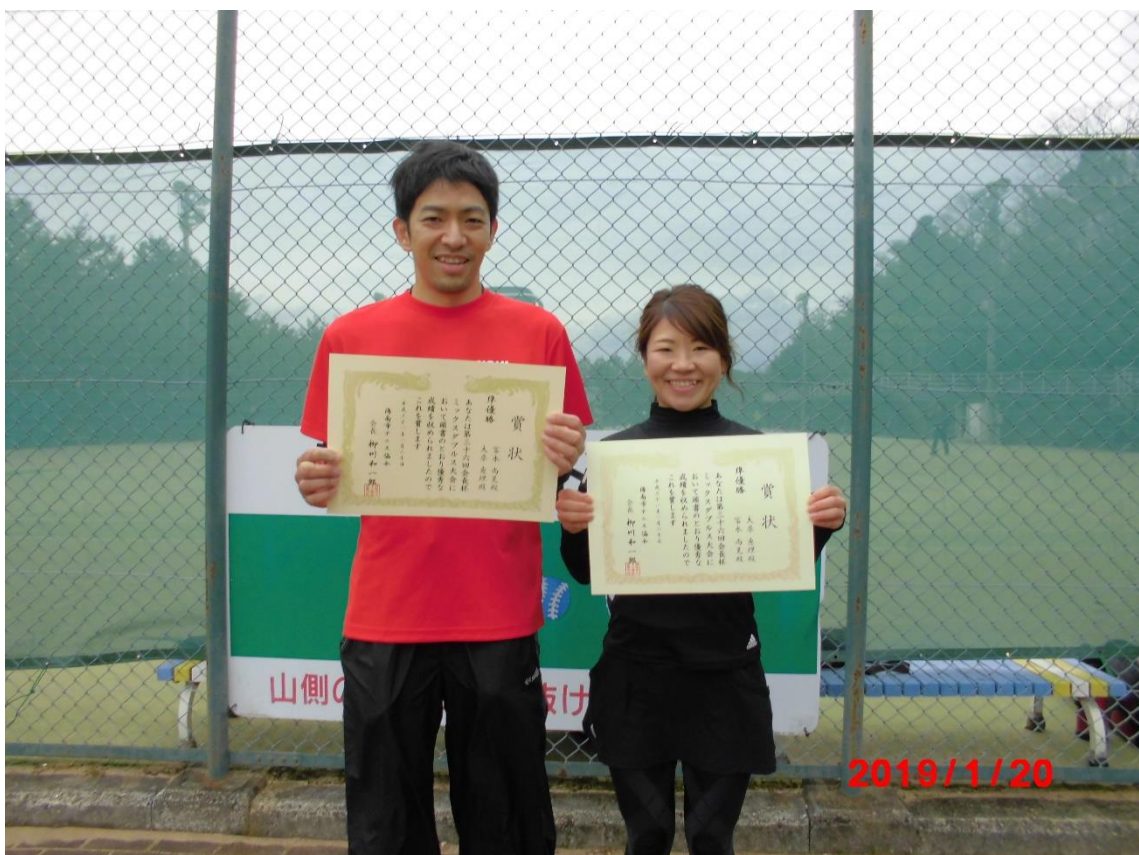 賞状
準優勝
あなたは 会長杯
ミックスダブルス大会に
おいて頭書のとおり優秀な
成績を収められましたので
これを賞します
海南市テニス協会
会長 柳川和一郎
賞状
準優勝
あなたは 会長杯
ミックスダブルス大会に
おいて頭書のとおり優秀な
成績を収められましたので
これを賞します
海南市テニス協会
会長 柳川和一郎
山側の 抜け
2019/1/20